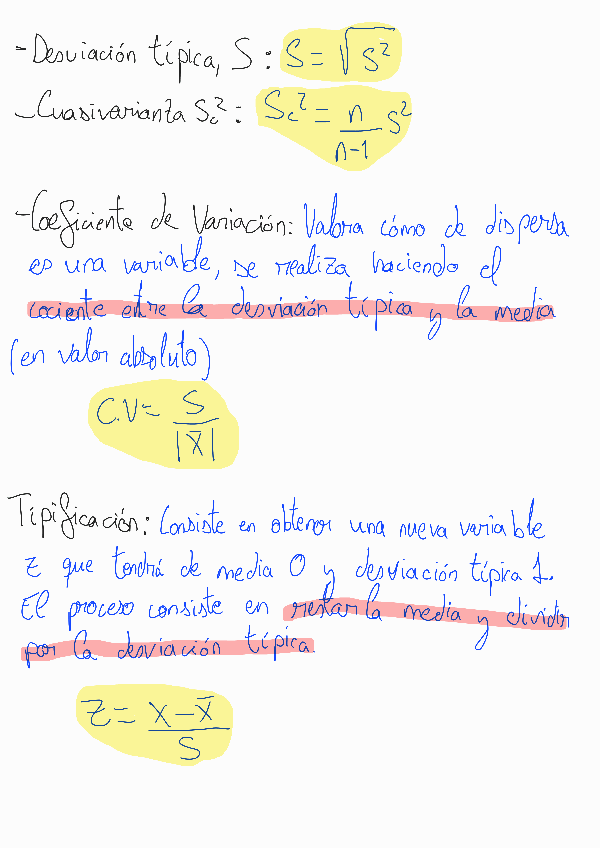 -Desviación típica, S: S = √S²
-Cuasivarianza Sc²: Sc² = n/(n-1) S²
-Coeficiente de Variación: Valora cómo de dispersa
es una variable, se realiza haciendo el
cociente entre la desviación típica y la media
(en valor absoluto)
C.V = S/|x̄|
Tipificación: Consiste en obtener una nueva variable
z que tendrá de media 0 y desviación típica 1.
El proceso consiste en restar la media y dividir
por la desviación típica.
z = (x - x̄)/S